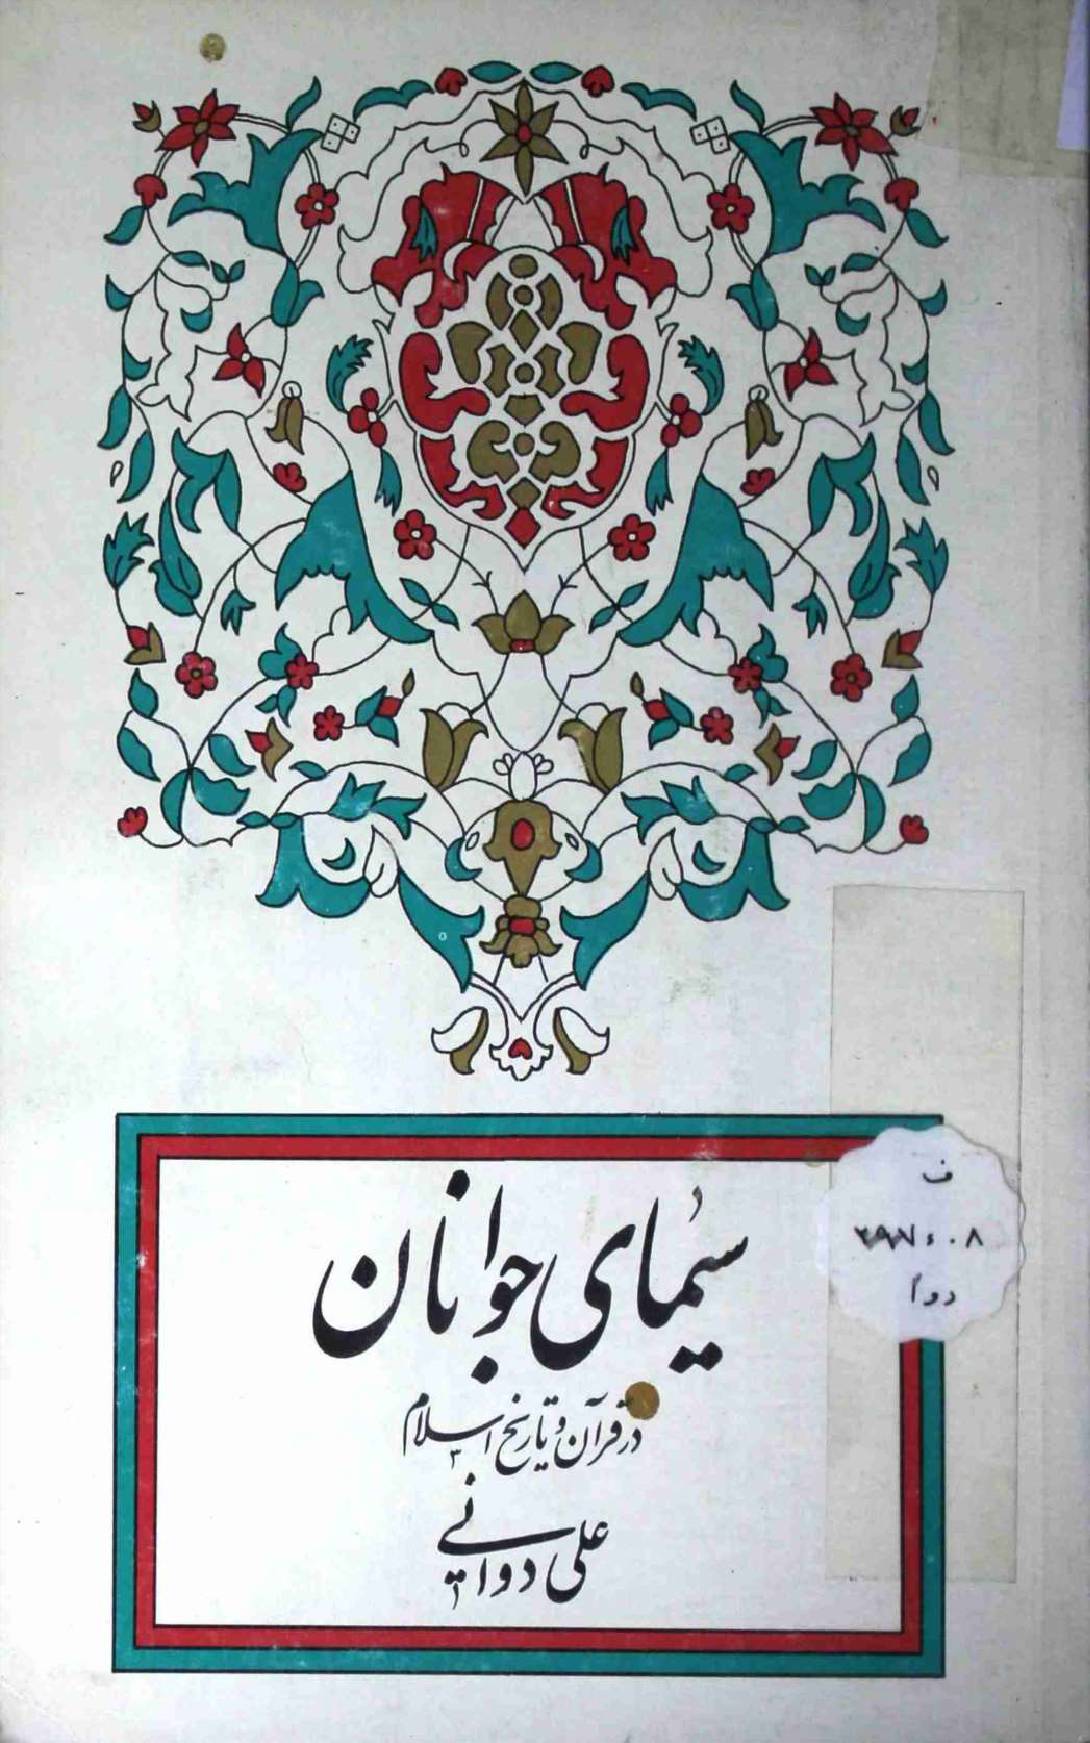 ف
۲۹۷٫۰۸
دوا
سیمای جوانان
در قرآن و تاریخ اسلام
علی دوانی